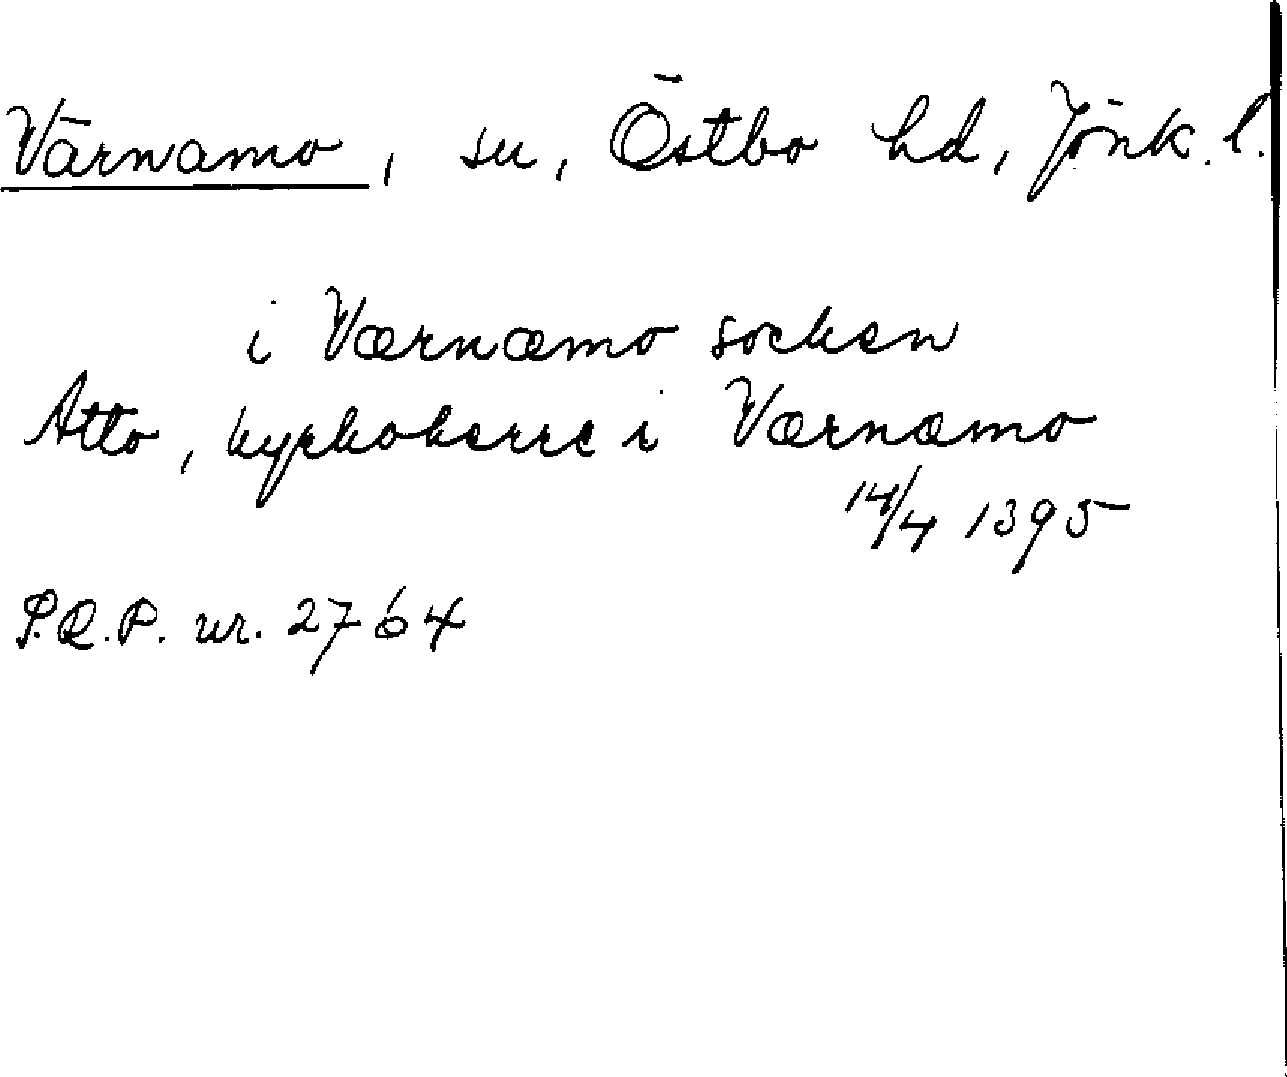 Värnamo, sn, Östbo hd, Jönk. l.
i Værnæmo socken
Atto, kyrkoherre i Værnæmo
14/4 1395
P.R.P. nr. 2764